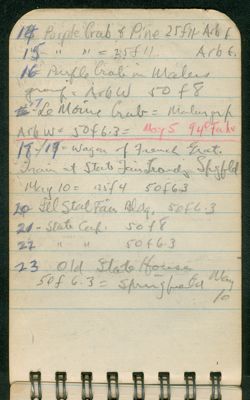 14 Purple Crab & Pine 25 f11 Arb E
15 " " = 25 f 11. Arb E.
16 Purple Crab in Malus
group = Arb W 50 f 8
Le Moine Crab =
Arb W = 50 f 6.3 = May 5
18-19 = Wagon of French Grat.
Train at State Fair Grounds, Spgfld
May 10 = 25 f 4 50 f 63
20 Ill Stat Fair Bldg. 50 f 6.3
21 - State Cap. 50 f 8
22 " " 50 f 6.3
23 Old State House
50 f 6.3 = Springfield May
10